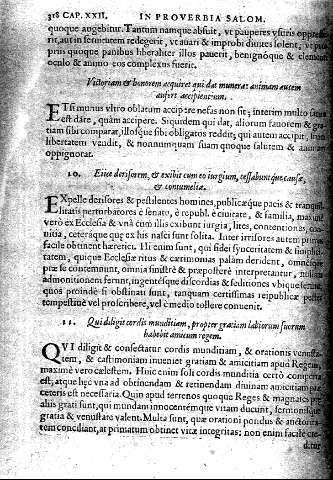 318 CAP. XXII. IN PROVERBIA SALOM.
quoque angebitur. Tantum namque absuit, vt pauperes vsuris
rit, aut in seruitutem redegerit, vt auari & improbi diuites solent, vt
priis quoque panibus liberaliter illos pauerit, benignóque &
oculo & animo eos complexus fuerit.
Victoriam & honorem acquiret qui dat munera: animam autem
aufert accipientium.
ETsi munus vltro oblatum accipere nefas non sit; interim multo
est dare, quàm accipere. Siquidem qui dat, aliorum fauorem &
tiam sibi comparat, illósque sibi obligatos reddit; qui autem accipit,
libertatem vendit, & nonnumquam suam quoque salutem &
oppignorat.
10. Eiice derisorem, & exibit cum eo iurgium, cessabuntque causæ,
& contumeliæ.
EXpelle derisores & pestilentes homines, publicæque pacis &
litatis perturbatores è senatu, è republ. è ciuitate, & familia,
verò ex Ecclesia & vnà cum illis exibunt iurgia, lites, contentiones,
uitia, ceteráque quæ ex his nasci sunt solita. Inter irrisores autem
facile obtinent hæretici. Hi enim sunt, qui fidei synceritatem &
tatem, quique Ecclesiæ ritus & cærimonias palàm derident,
præ se contemnunt, omnia sinistrè & præposterè interpretantur,
admonitionem ferunt, ingentésque discordias & seditiones vbique
quos proinde si obstinati sunt, tanquam certissimas reipublicæ
tempestiuè vel proscribere, vel è medio tollere conuenit.
11. Qui diligit cordis munditiam, propter gratiam labiorum suorum
habebit amicum regem.
QVI diligit & consectatur cordis munditiam, & orationis
tem, & castimoniam inueniet gratiam & amicitiam apud Regem,
maximè vero cælestem. Huic enim soli cordis munditia certò
est, atque hæc vna ad obtinendam & retinendam diuinam amicitiam
ceteris est necessaria. Quin apud terrenos quoque Reges &
aliis grati sunt, qui mundam innocentémque vitam ducunt,
gratia & venustate valent. Multa sunt, quæ orationi pondus &
tem conciliant, at primatum obtinet vitæ integritas: non enim facilè
ditur